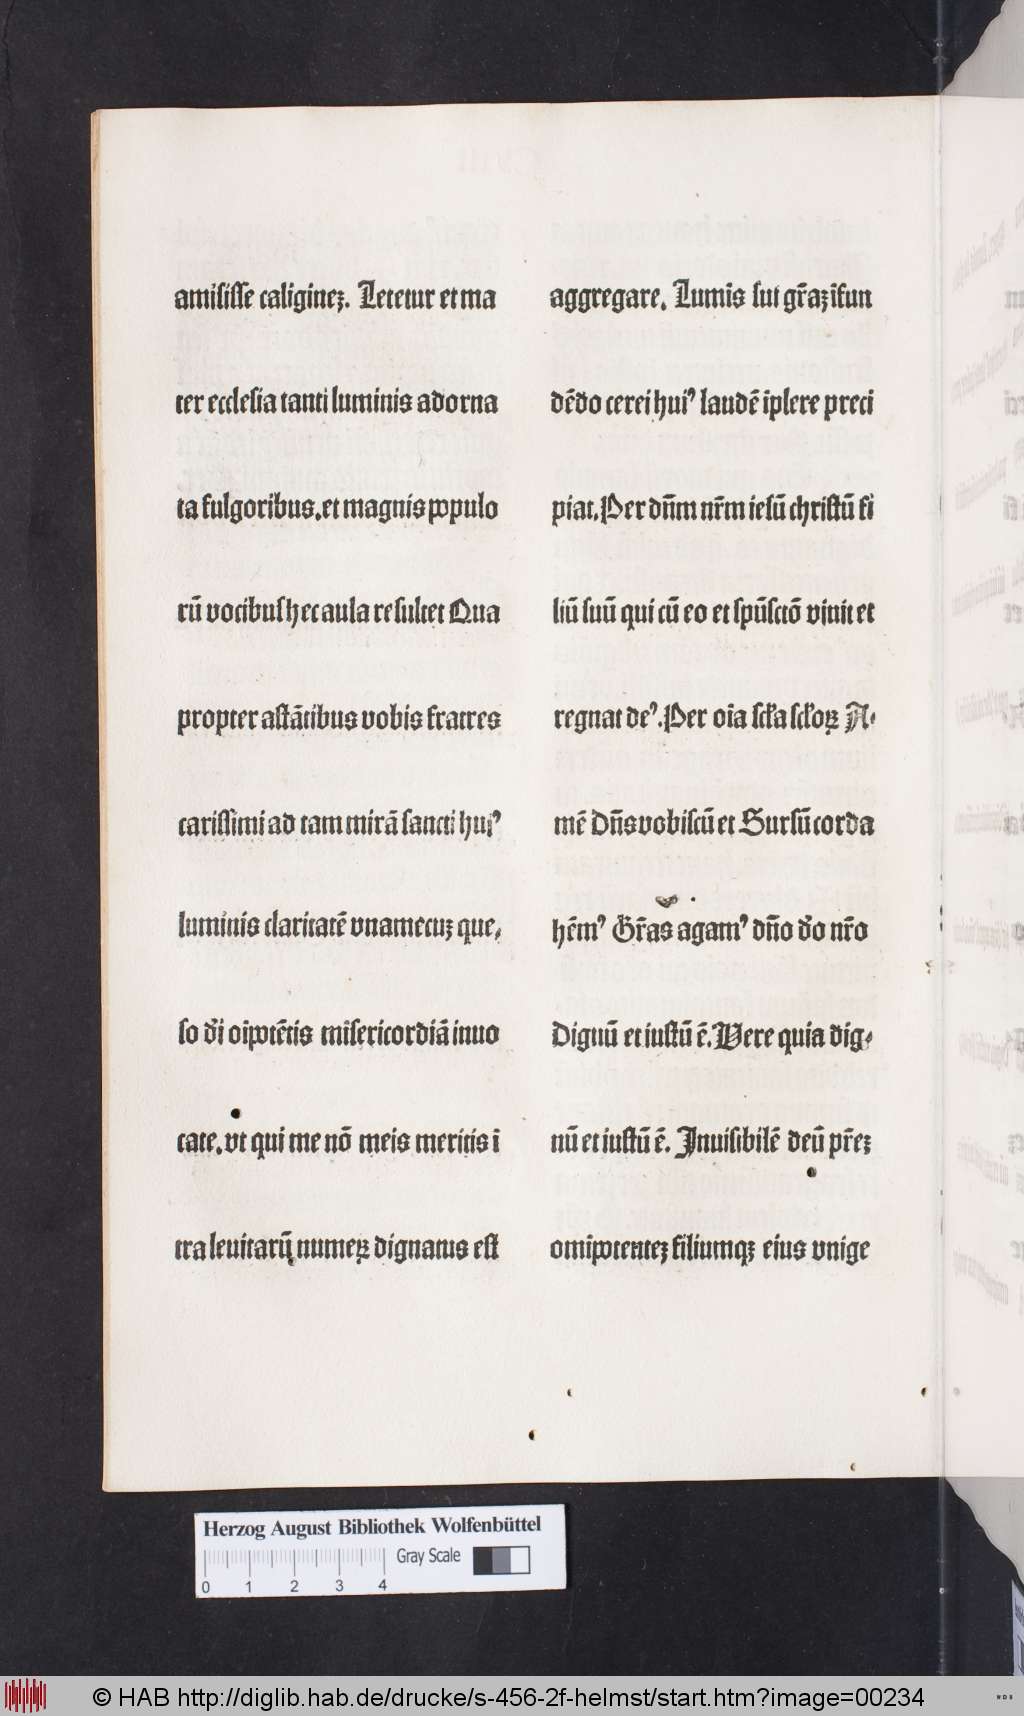 amisisse caligineꝫ. Letetur et ma
ter ecclesia tanti luminis adorna
ta fulgoribus. et magnis popolo
rū vocibus hec aula resultet Qua
propter astātibus vobis fratres
carissimi ad tam mirā sancti huiꝰ
luminis claritatē vnamecuꝫ que⸗
so d̄i oīpotētis misericordiā inuo
cate. vt qui me nō meis meritis ī
tra leuitarū numeꝝ dignatus est
aggregare. Lumīs sui gr̄aꝫ īfun
dēdo cerei huiꝰ laudē īplere preci
piat. Per dn̄m nr̄m iesū christū fi
liū suū qui cū eo et spū sctō viuit et
regnat deꝰ. Per oīa scl̄a scl̄oꝝ A⸗
mē Dn̄s vobiscū et Sursū corda
hēmꝰ Gr̄as agamꝰ dn̄o d̄o nr̄o
Dignū et iustū ē. Vere quia dig⸗
nū et iustū ē. Inuisibilē deū pr̄eꝫ
omīpotenteꝫ filiumqꝫ eius vnige
Herzog August Bibliothek Wolfenbüttel
Gray Scale
0 1 2 3 4
© HAB http://diglib.hab.de/drucke/s-456-2f-helmst/start.htm?image=00234